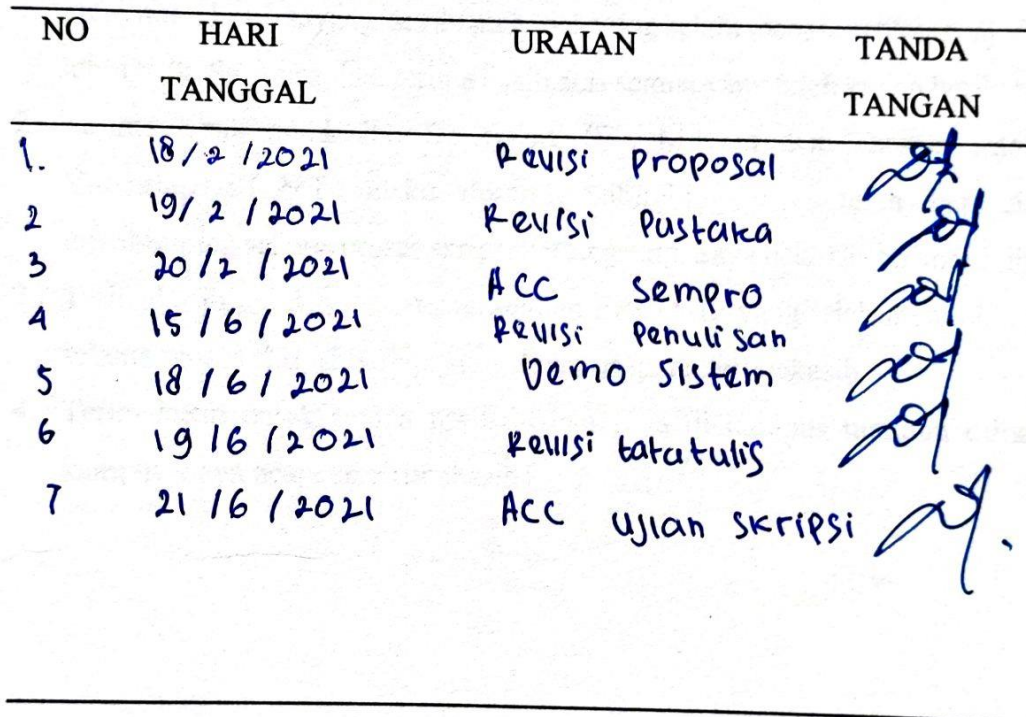 NO HARI TANGGAL URAIAN TANDA TANGAN
1. 18/2/2021 Revisi Proposal
2 19/2/2021 Revisi Pustaka
3 20/2/2021 ACC Sempro
4 15/6/2021 Revisi Penulisan
5 18/6/2021 Demo Sistem
6 19/6/2021 Revisi tatatulis
7 21/6/2021 ACC Ujian Skripsi